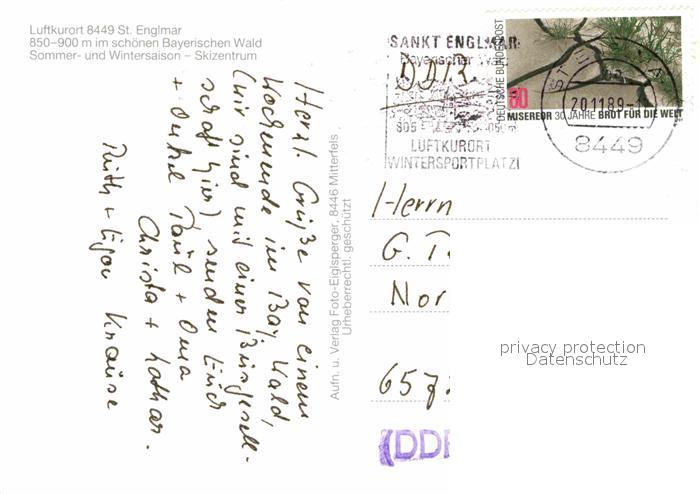 Luftkurort 8449 St. Englmar
850–900 m im schönen Bayerischen Wald
Sommer- und Wintersaison – Skizentrum
Herzl. Grüße von einem
Wochenende im Bay. Wald,
(wir sind mit einer Busgesell-
schaft hier) senden Euch
+ Onkel Paul + Oma
Christa + Lothar.
Ruth + Krause
Aufn. u. Verlag Foto-Eiglsperger, 8446 Mitterfels
Urheberrechtl. geschützt
SANKT ENGLMAR
Bayerischer Wald
DDR
805 -1050m
LUFTKURORT
WINTERSPORTPLATZ
DEUTSCHE BUNDESPOST
80
MISEREOR 30 JAHRE BROT FÜR DIE WELT
20.11.89
8449
Herrn
G. T.
Nor
657
(DD
privacy protection
Datenschutz